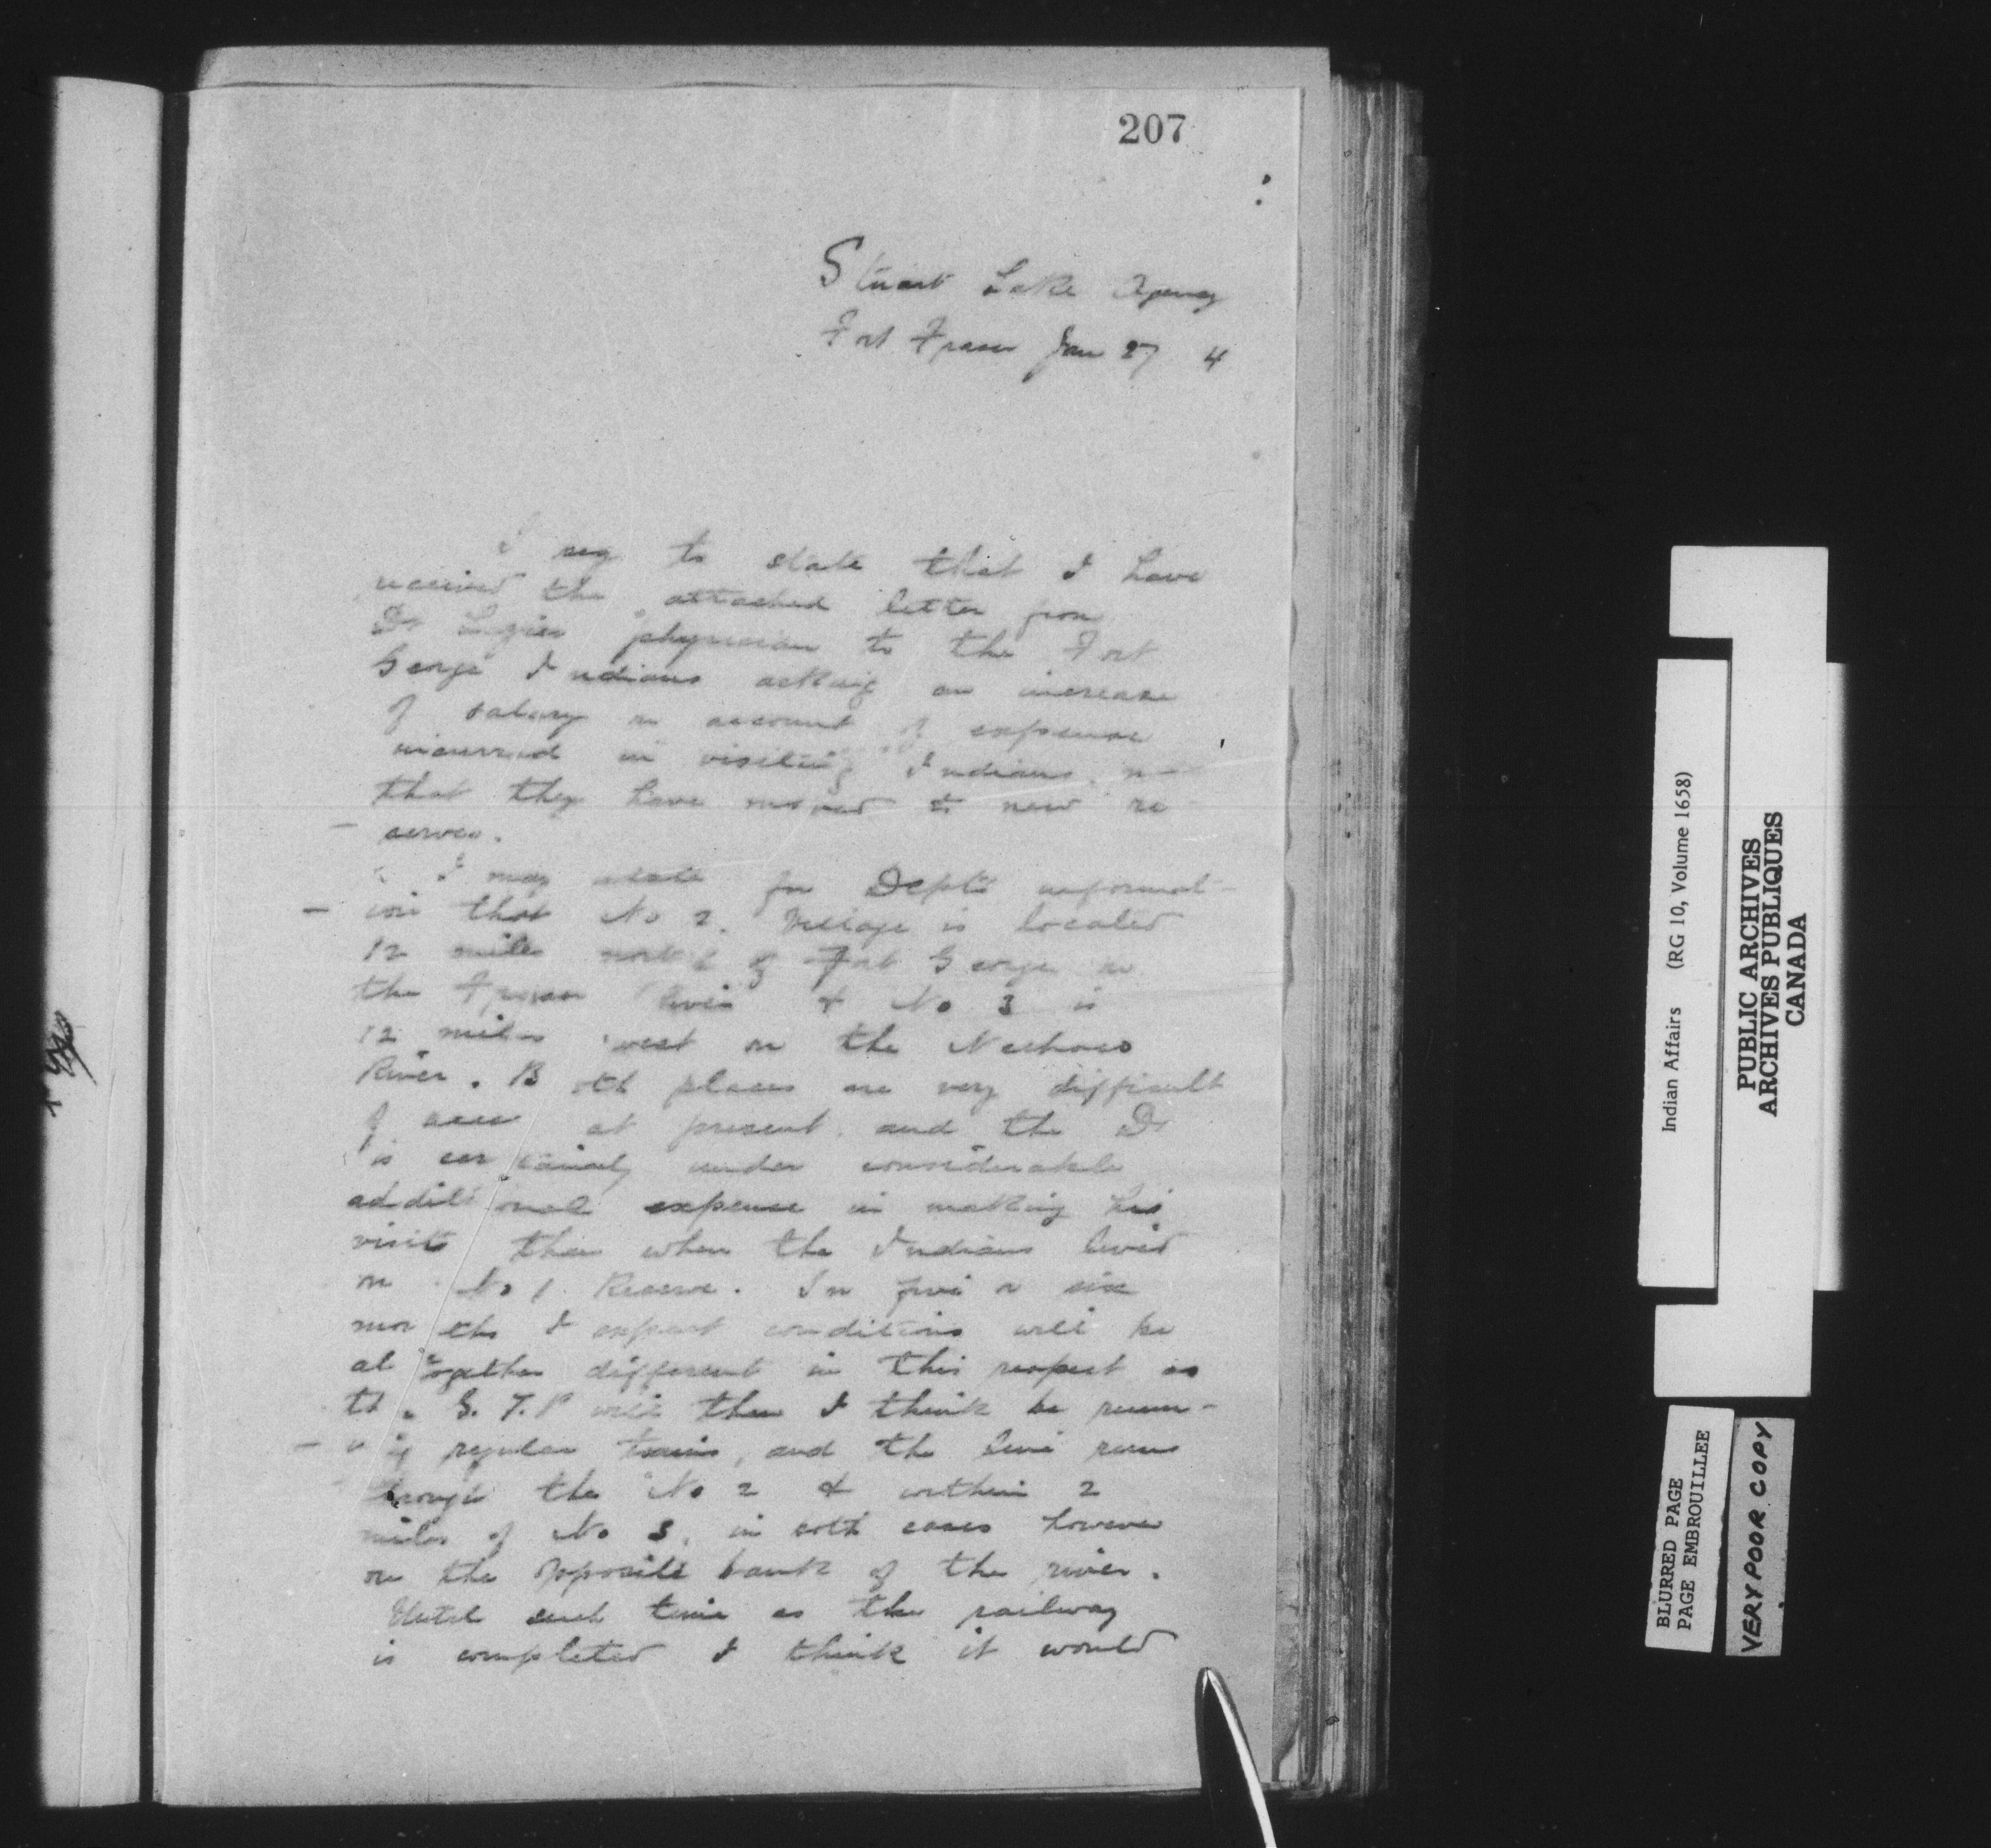 207
Stuart Lake Agency
Fort Fraser Jan 27 4
I beg to state that I have
received the attached letter from
Dr physician to the Fort
George Indians asking an increase
of salary on account of expense
incurred in visiting Indians
that they have moved to new re
- serves.
I may state for Dept's informat-
- ion that No 2. Village is located
12 miles north of Fort George on
the Fraser River & No 3 is
12 miles west on the Nechaco
River. Both places are very difficult
of access at present. and the Dr
is certainly under considerable
additional expense in making his
visits than when the Indians lived
on No 1. Reserve. In five or six
months I expect conditions will be
altogether different in this respect as
the G.T.P will then I think be runn-
- ing regular trains, and the line runs
through the No 2 & within 2
miles of No 3, in both cases however
on the opposite bank of the river.
Until such time as the railway
is completed I think it would
Indian Affairs (RG 10, Volume 1658)
PUBLIC ARCHIVES
ARCHIVES PUBLIQUES
CANADA
BLURRED PAGE
PAGE EMBROUILLEE
VERY POOR COPY